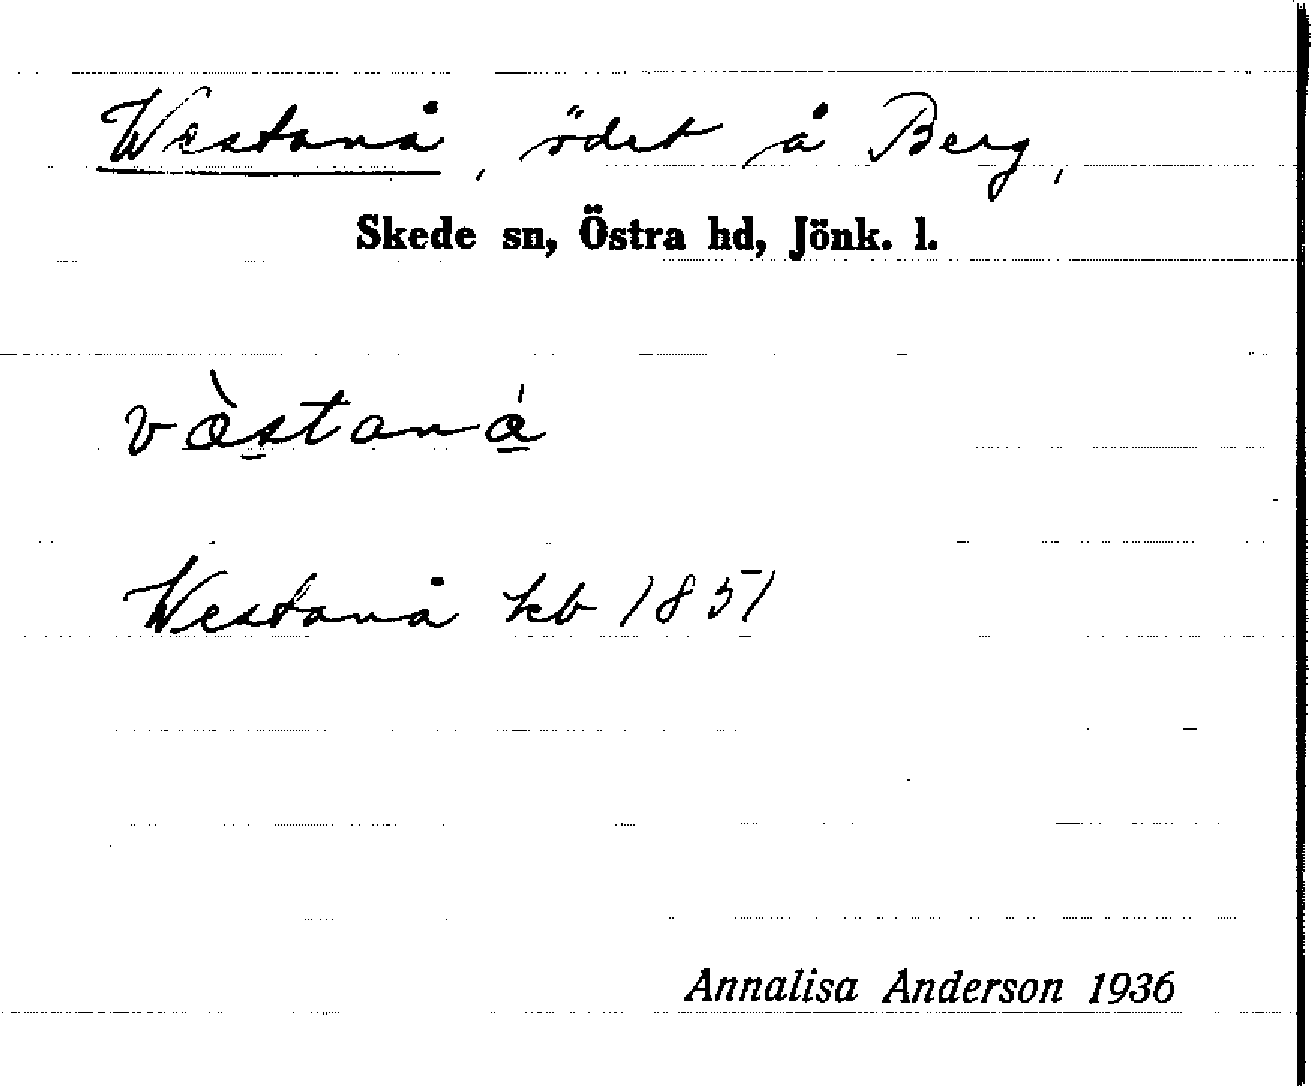 Westanå, ödet å Berg,
Skede sn, Östra hd, Jönk. l.
væ̀staná
Westanå kb 1851
Annalisa Anderson 1936